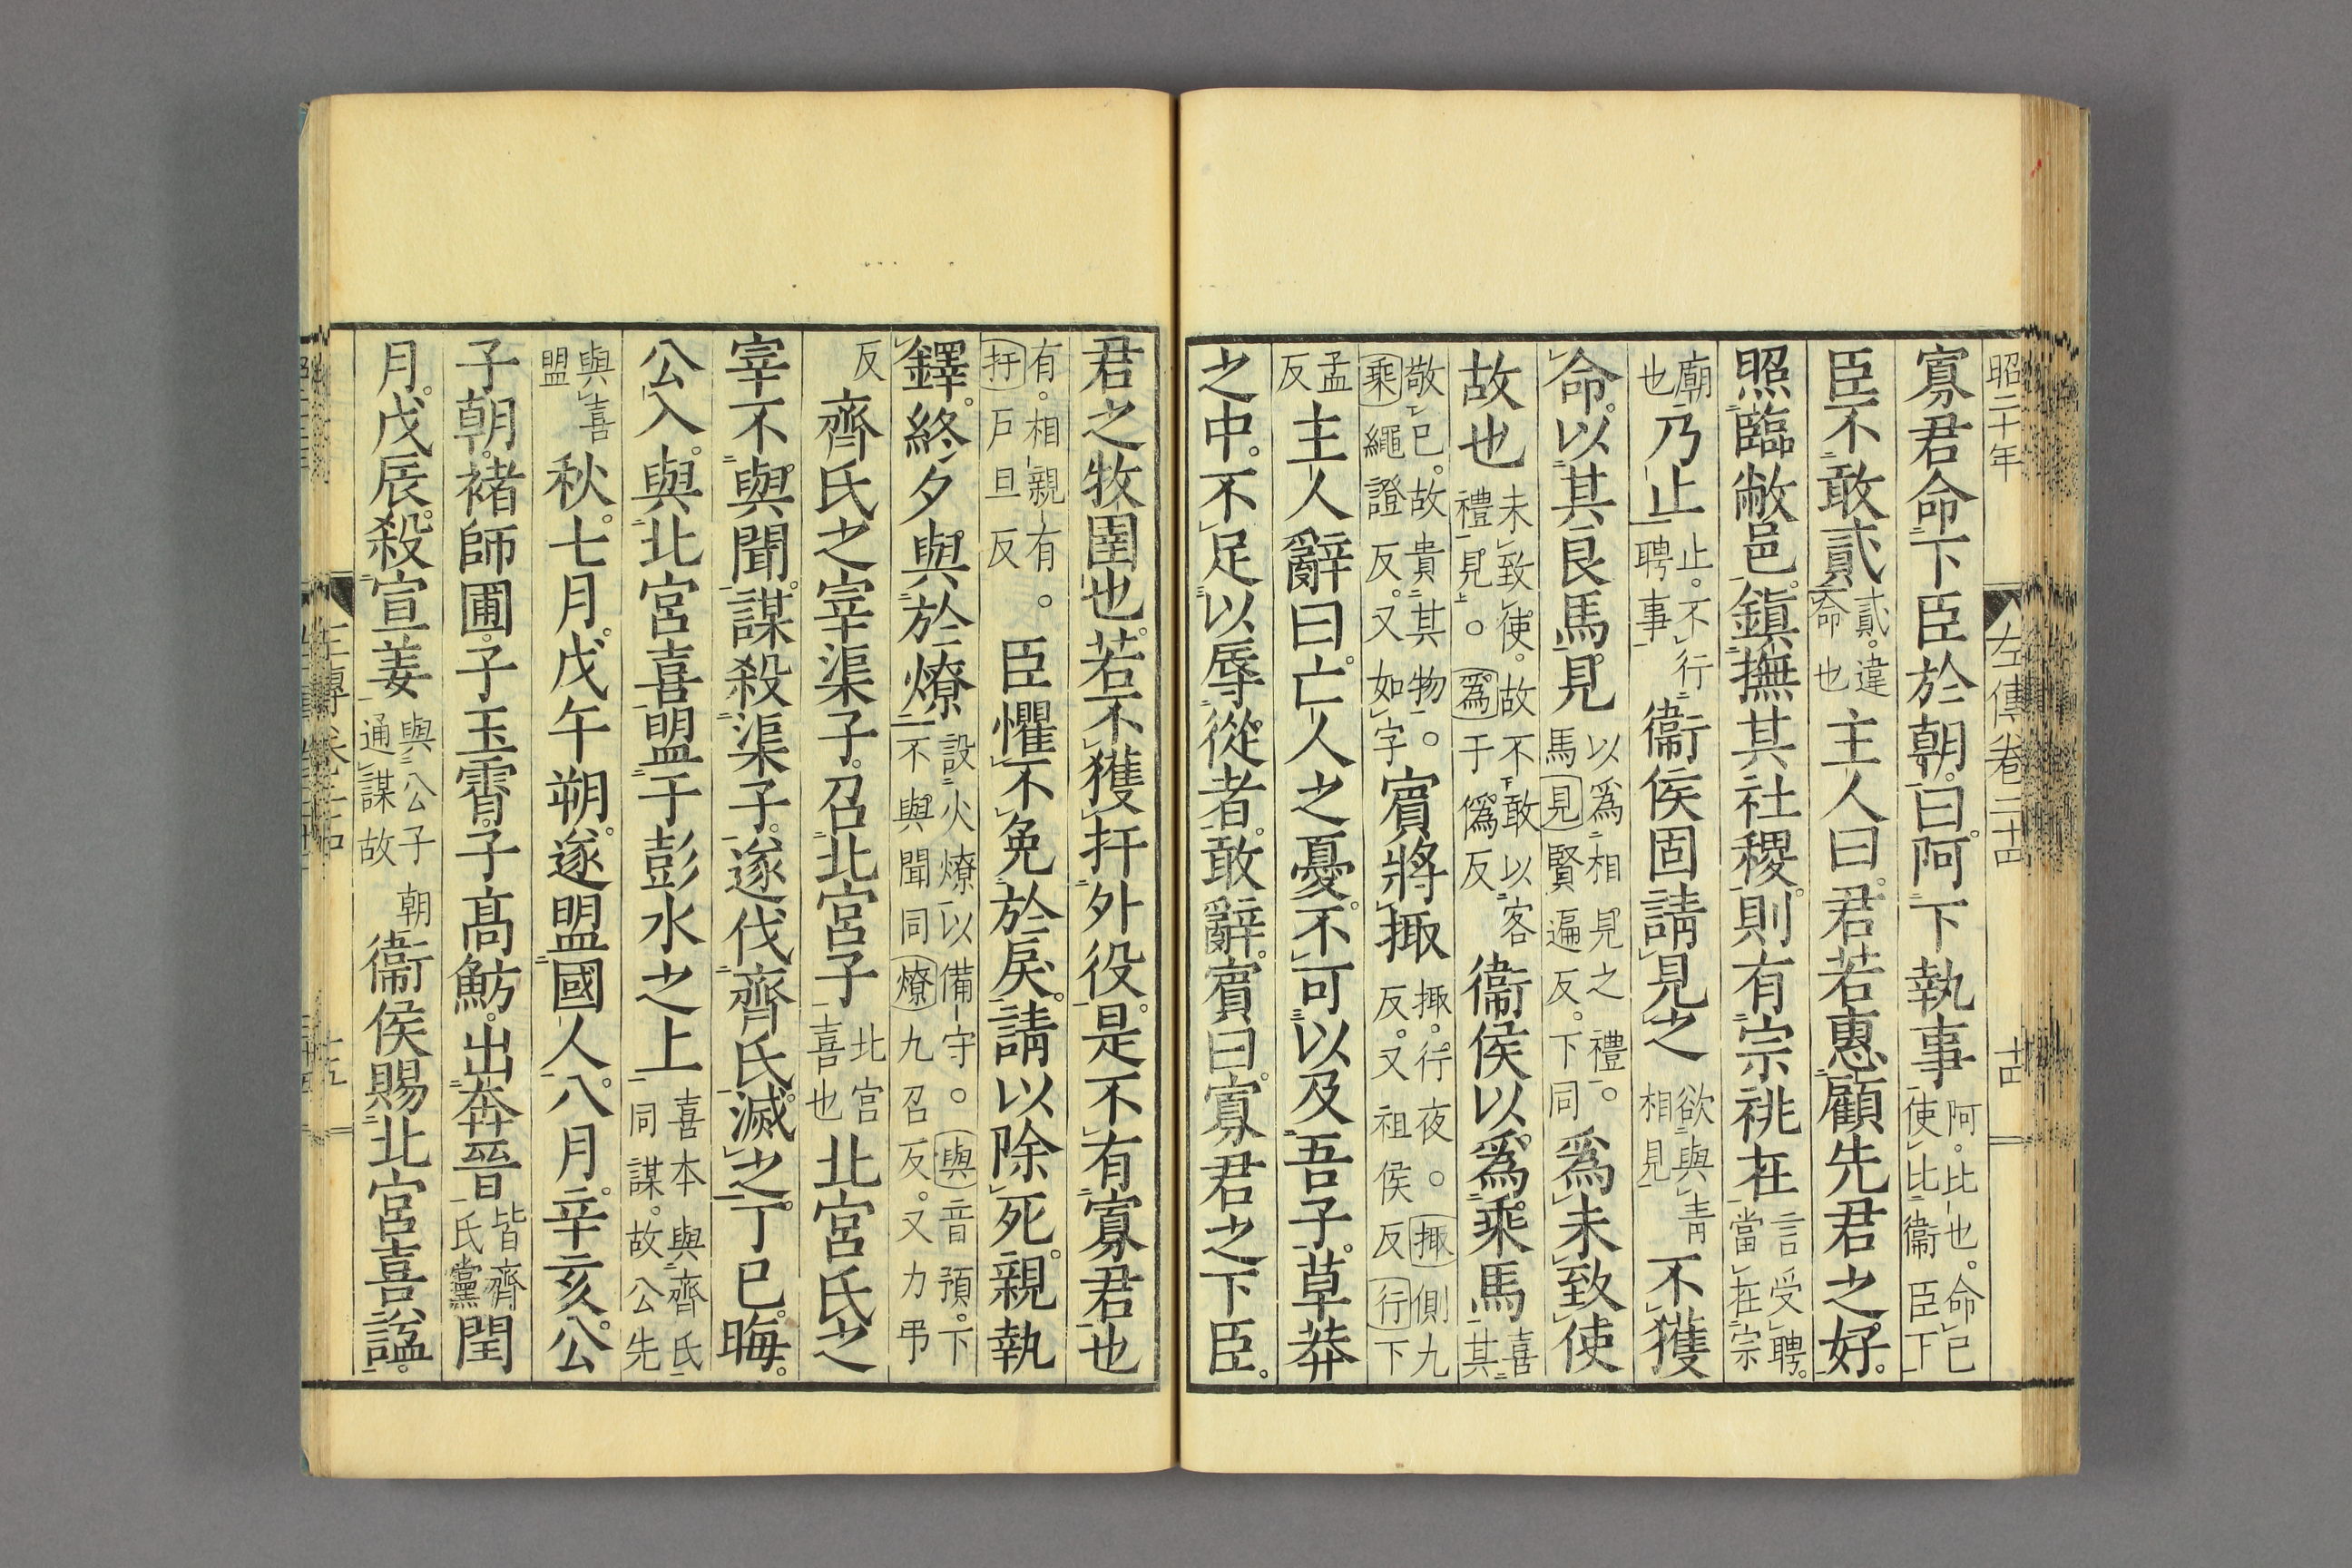 昭二十年 左傳卷二十四 十四
寡君命下臣於朝。曰。阿下執事阿。比也。命已使比衞臣下
臣不敢貳貳。違命也主人曰。君若惠顧先君之好。
照臨敝邑。鎮撫其社稷。則有宗祧在言受聘。當在宗
廟也乃止止。不行聘事衞侯固請見之欲與青相見不獲
命。以其良馬見以爲相見之禮。馬見賢遍反。下同爲未致使
故也未致使。故不敢以客禮見。爲于僞反衞侯以爲乘馬喜其
敬己。故貴其物。乘繩證反。又如字賓將掫掫。行夜。掫側九反。又祖侯反行下
孟反主人辭曰。亡人之憂。不可以及吾子。草莽
之中。不足以辱從者。敢辭。賓曰。寡君之下臣。
君之牧圉也。若不獲扞外役。是不有寡君也
有。相親有。扞戶旦反臣懼不免於戾。請以除死。親執
鐸。終夕與於燎設火燎以備守。與音預。下不與聞同燎九召反。又力弔
反齊氏之宰渠子。召北宮子北宮喜也北宮氏之
宰不與聞。謀殺渠子。遂伐齊氏。滅之。丁巳。晦。
公入。與北宮喜盟于彭水之上喜本與齊氏同謀。故公先
與喜盟秋七月。戊午朔。遂盟國人。八月。辛亥。公
子朝。褚師圃。子玉霄。子高魴。出奔晉皆齊氏黨閏
月。戊辰。殺宣姜與公子朝通謀故衞侯賜北宮喜謚。